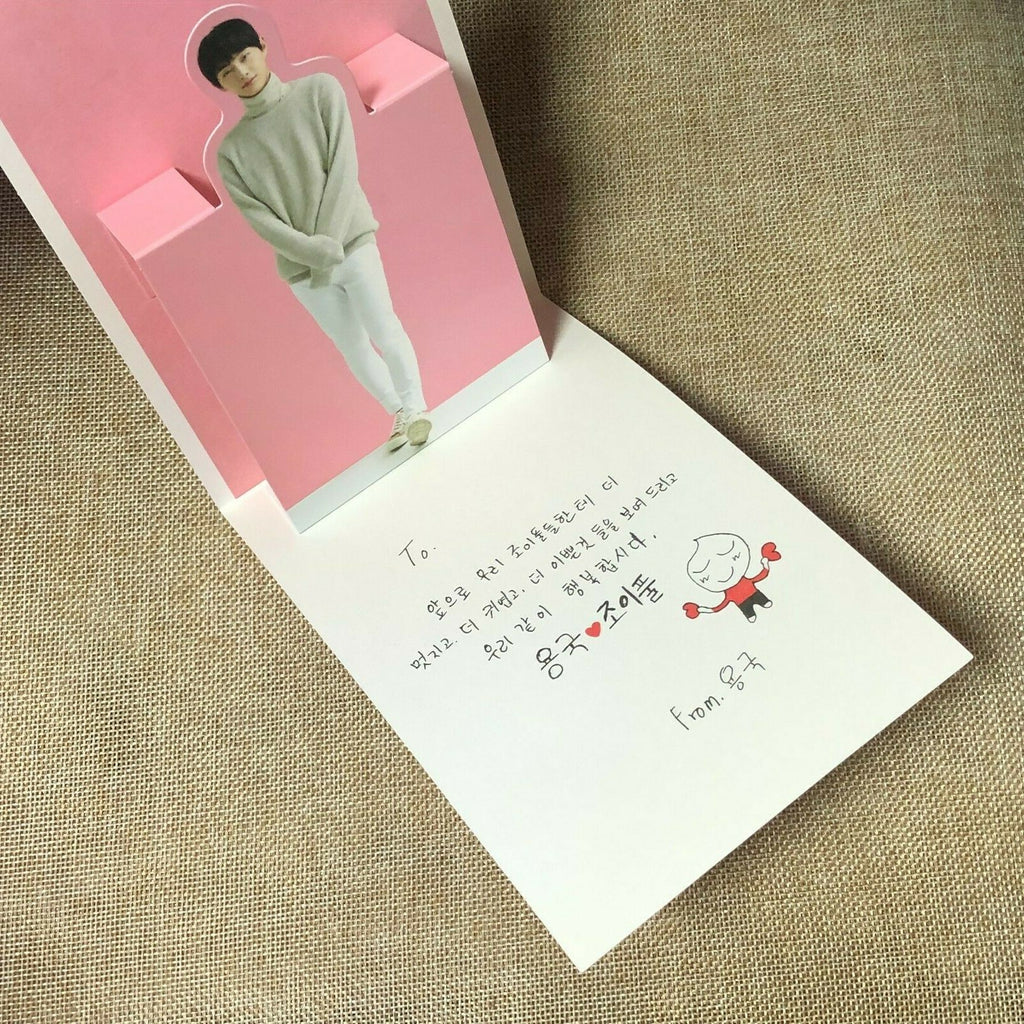 To.
앞으로 우리 조이풀들한테 더
멋지고. 더 귀엽고. 더 이쁜것 들을 보여 드리고
우리 같이 행복합시다.
용국♥조이풀
From. 용국